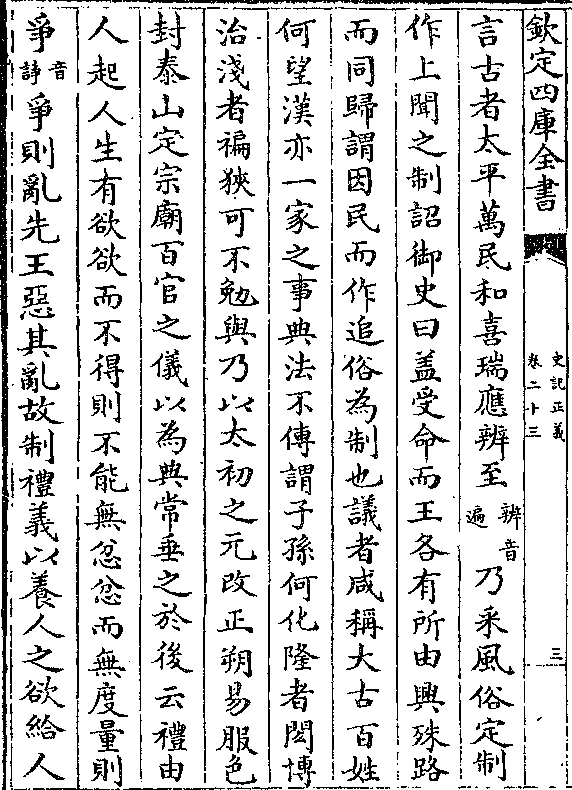 欽定四庫全書
史記正義
卷二十三
三
言古者太平萬民和喜瑞應辨至辨音遍乃采風俗定制
作上聞之制詔御史曰盖受命而王各有所由興殊路
而同歸謂因民而作追俗為制也議者咸稱大古百姓
何望漢亦一家之事典法不傳謂子孫何化隆者閎博
治淺者褊狹可不勉與乃以太初之元改正朔易服色
封泰山定宗廟百官之儀以為典常垂之於後云禮由
人起人生有欲欲而不得則不能無忿忿而無度量則
爭音諍爭則亂先王惡其亂故制禮義以養人之欲給人